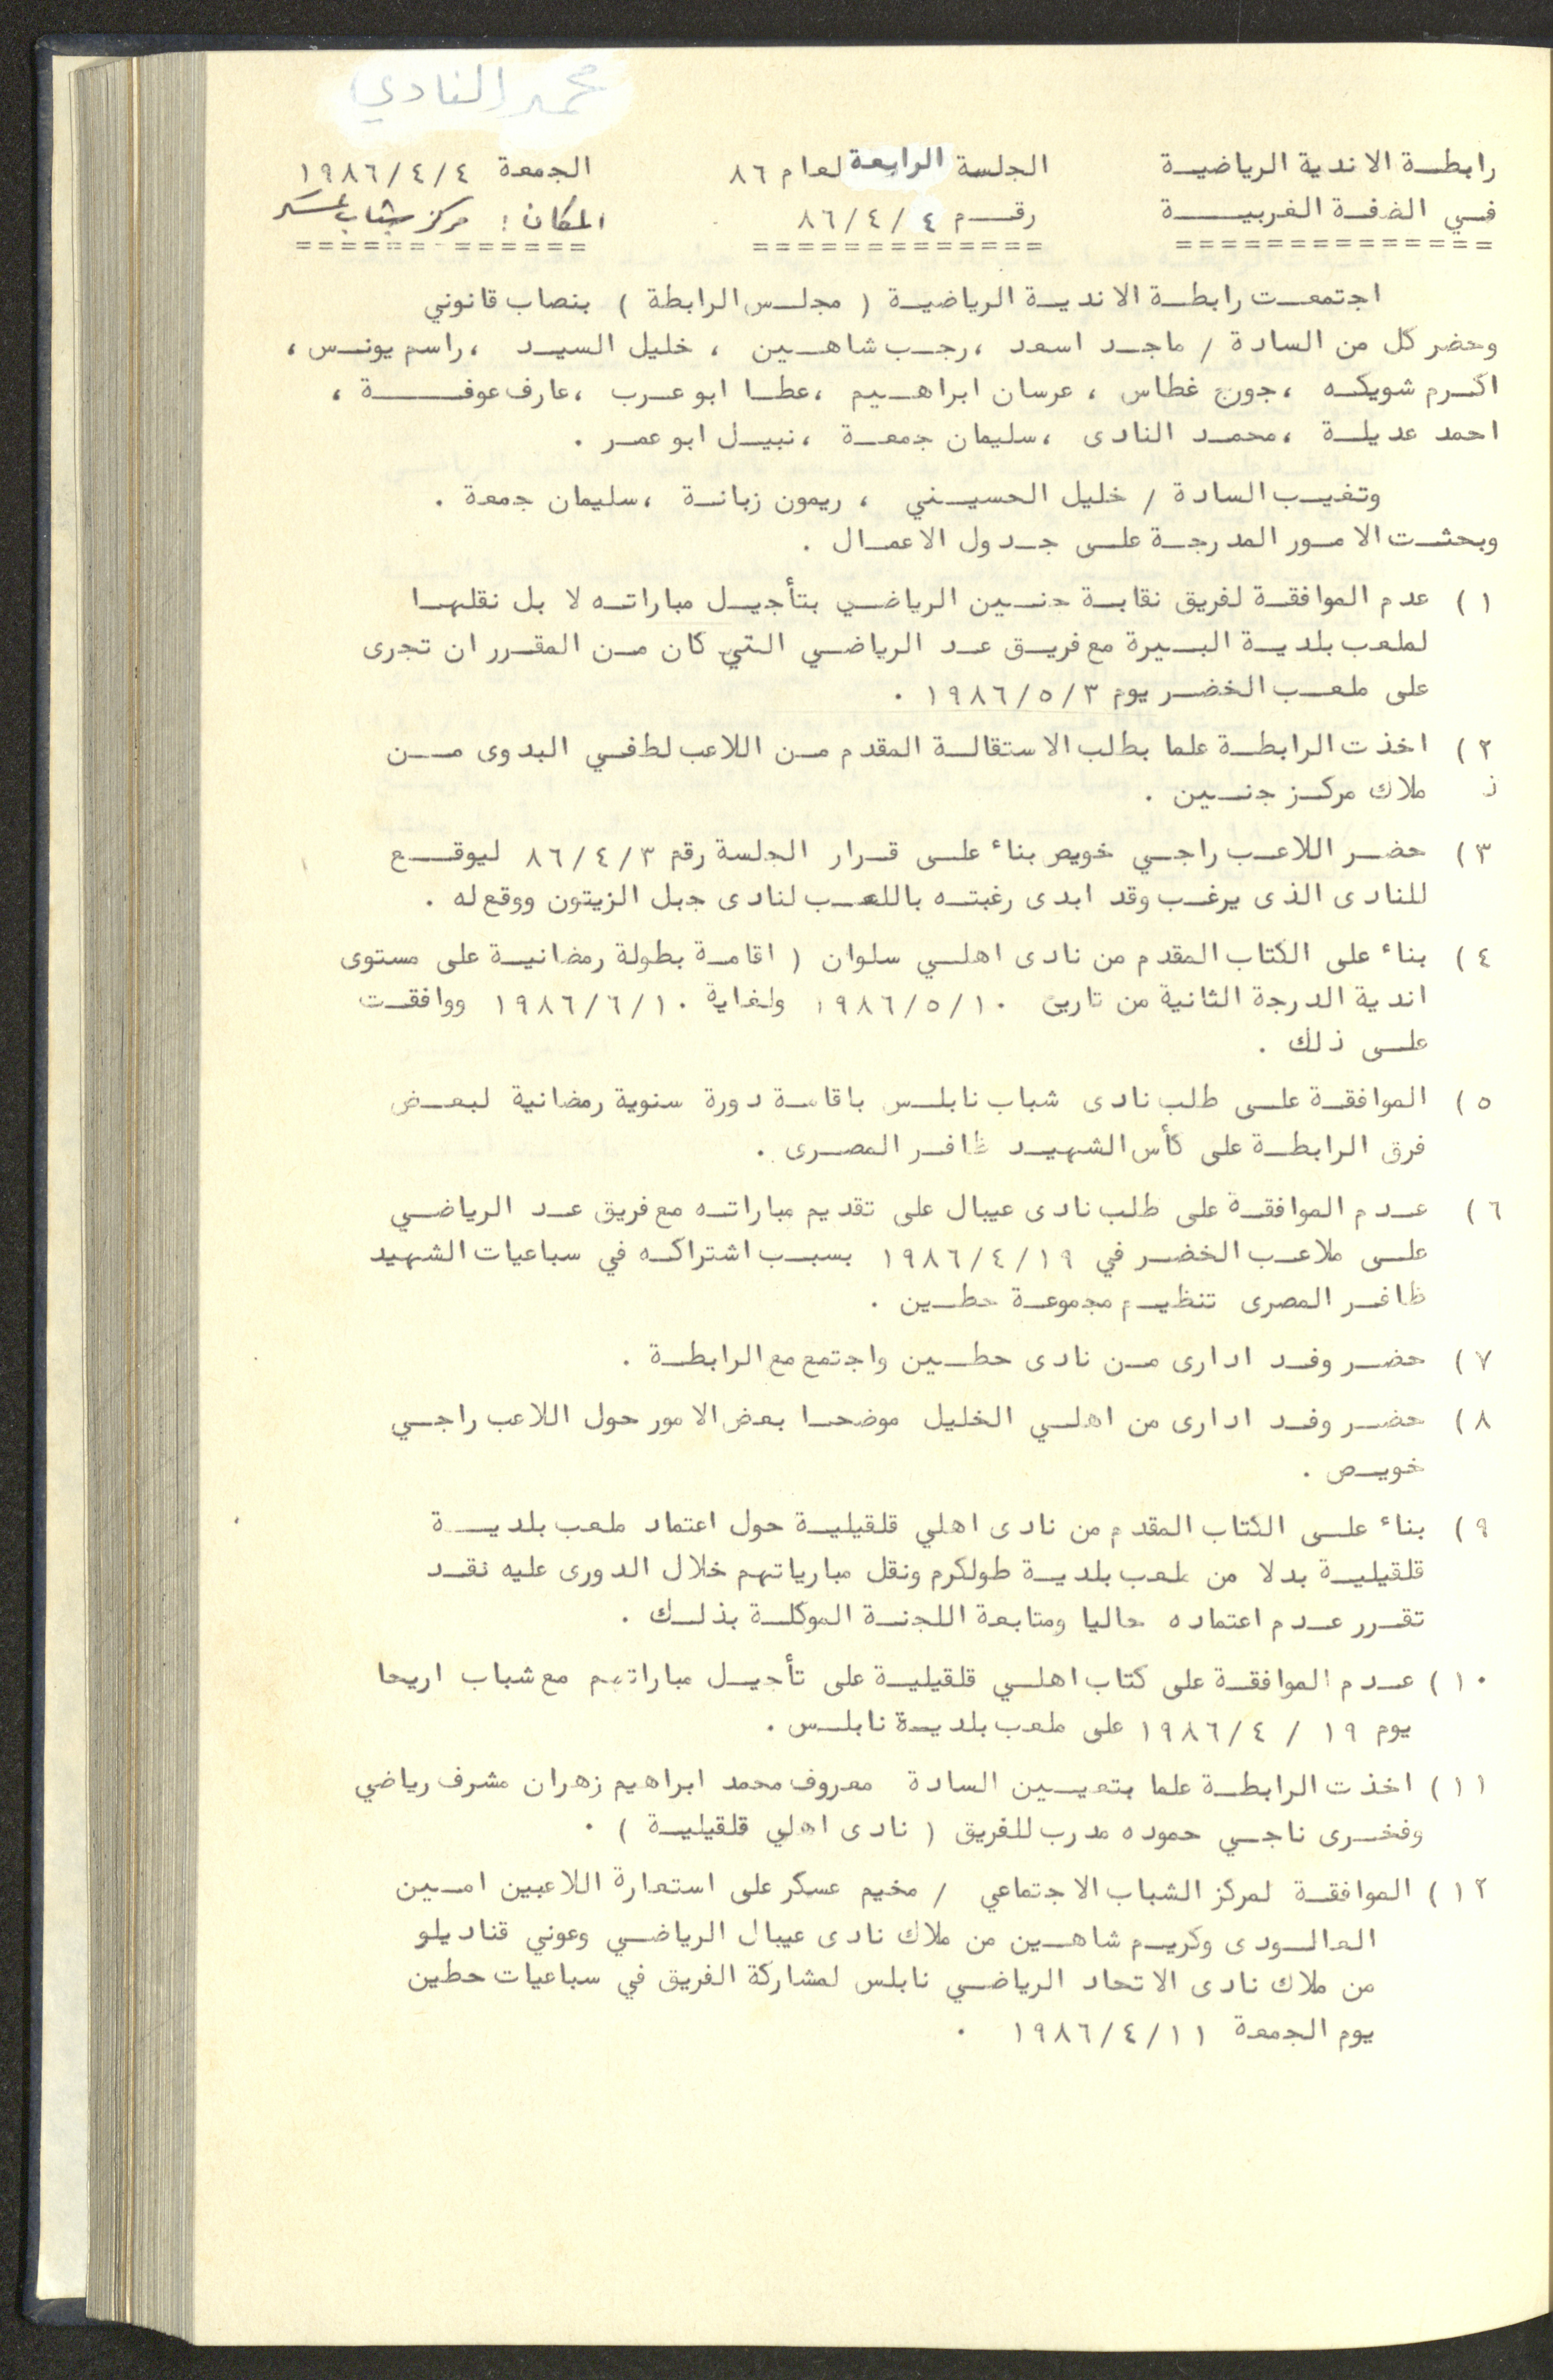 محمد النادي
رابطة الاندية الرياضية
في الضفة الغربية
==============
الجلسة الرابعة لعام ٨٦
رقم ٤ / ٤ / ٨٦
=============
الجمعة ٤ / ٤ / ١٩٨٦
المكان : مركز شباب عسكر
=============
اجتمعت رابطة الاندية الرياضية ( مجلس الرابطة ) بنصاب قانوني
وحضر كل من السادة / ماجد اسعد ، رجب شاهين ، خليل السيد ، راسم يونس ،
اكرم شويكه ، جورج غطاس ، عرسان ابراهيم ، عطا ابو عرب ، عارف عوفة ،
احمد عديلة ، محمد النادى ، سليمان جمعة ، نبيل ابو عمر .
وتغيب السادة / خليل الحسيني ، ريمون زبانة ، سليمان جمعة .
وبحثت الامور المدرجة على جدول الاعمال .
١ ) عدم الموافقة لفريق نقابة جنين الرياضي بتأجيل مباراته لا بل نقلها
لملعب بلدية البيرة مع فريق عد الرياضي التي كان من المقرر ان تجرى
على ملعب الخضر يوم ٣ / ٥ / ١٩٨٦ .
٢ ) اخذت الرابطة علما بطلب الاستقالة المقدم من اللاعب لطفي البدوى من
ملاك مركز جنين .
٣ ) حضر اللاعب راجي خويص بناء على قرار الجلسة رقم ٣ / ٤ / ٨٦ ليوقع
للنادى الذى يرغب وقد ابدى رغبته باللعب لنادى جبل الزيتون ووقع له .
٤ ) بناء على الكتاب المقدم من نادى اهلي سلوان ( اقامة بطولة رمضانية على مستوى
اندية الدرجة الثانية من تاريخ ١٠ / ٥ / ١٩٨٦ ولغاية ١٠ / ٦ / ١٩٨٦ ووافقت
على ذلك .
٥ ) الموافقة على طلب نادى شباب نابلس باقامة دورة سنوية رمضانية لبعض
فرق الرابطة على كأس الشهيد ظافر المصرى .
٦ ) عدم الموافقة على طلب نادى عيبال على تقديم مباراته مع فريق عد الرياضي
على ملاعب الخضر في ١٩ / ٤ / ١٩٨٦ بسبب اشتراكه في سباعيات الشهيد
ظافر المصرى تنظيم مجموعة حطين .
٧ ) حضر وفد ادارى من نادى حطين واجتمع مع الرابطة .
٨ ) حضر وفد ادارى من اهلي الخليل موضحا بعض الامور حول اللاعب راجي
خويص .
٩ ) بناء على الكتاب المقدم من نادى اهلي قلقيلية حول اعتماد ملعب بلدية
قلقيلية بدلا من ملعب بلدية طولكرم ونقل مبارياتهم خلال الدورى عليه نقد
تقرر عدم اعتماده حاليا ومتابعة اللجنة الموكلة بذلك .
١٠ ) عدم الموافقة على كتاب اهلي قلقيلية على تأجيل مباراتهم مع شباب اريحا
يوم ١٩ / ٤ / ١٩٨٦ على ملعب بلدية نابلس .
١١ ) اخذت الرابطة علما بتعيين السادة معروف محمد ابراهيم زهران مشرف رياضي
وفخرى ناجي حموده مدرب للفريق ( نادى اهلي قلقيلية ) .
١٢ ) الموافقة لمركز الشباب الاجتماعي / مخيم عسكر على استعارة اللاعبين امين
العالودى وكريم شاهين من ملاك نادى عيبال الرياضي وعوني قناديلو
من ملاك نادى الاتحاد الرياضي نابلس لمشاركة الفريق في سباعيات حطين
يوم الجمعة ١١ / ٤ / ١٩٨٦ .